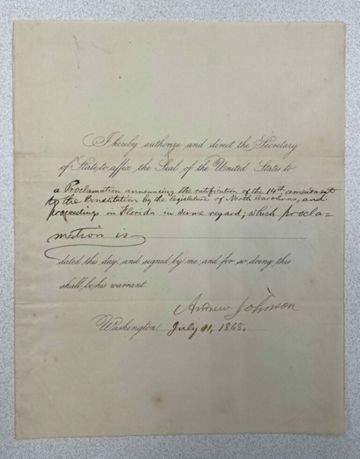 I hereby authorize and direct the Secretary
of State to affix the Seal of the United States to
a Proclamation announcing the ratification of the 14th amendment
to the Constitution by the legislature of North Carolina, and
proceedings in Florida in same regard, which procla=
mation is
dated this day, and signed by me, and for so doing this
shall be his warrant.
Andrew Johnson
Washington, July 11, 1868.